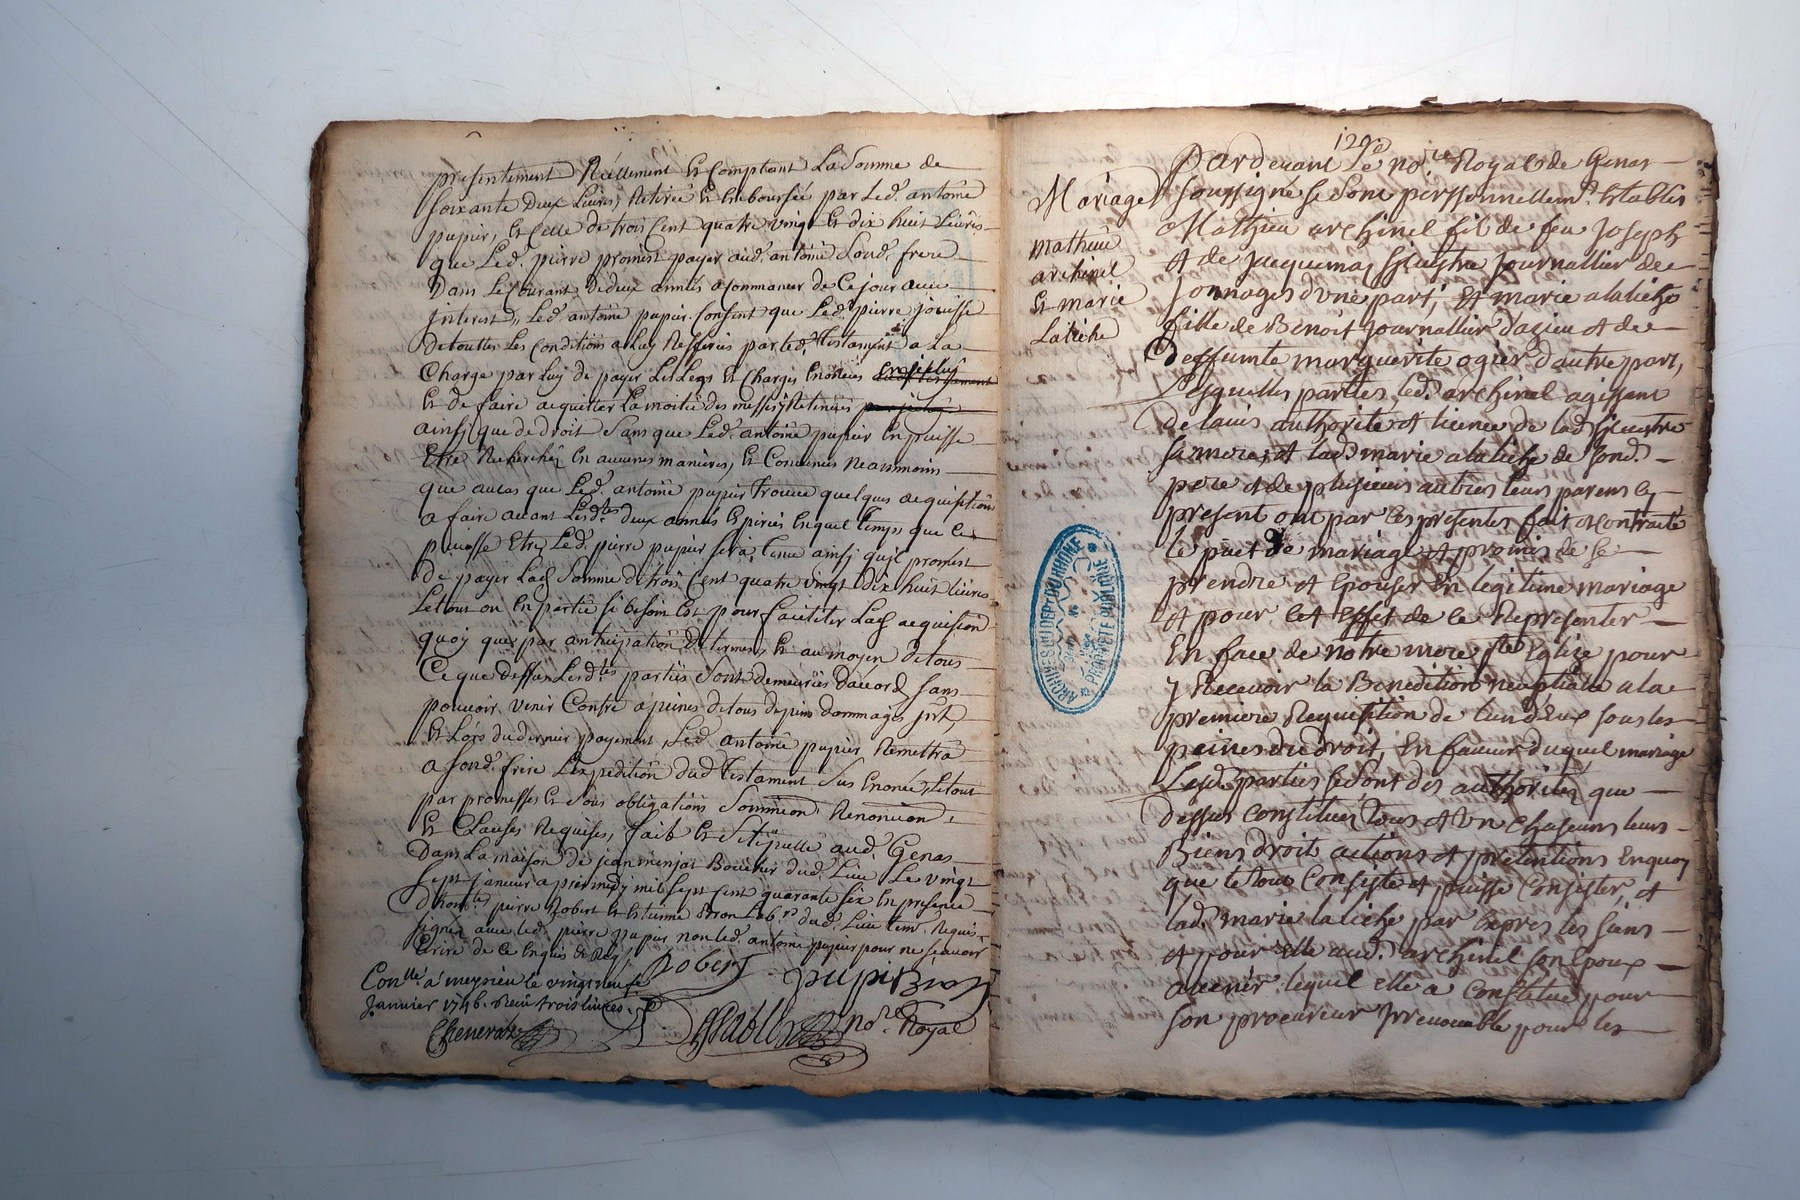 presentement Réellement Et Comptant La Somme de
soixante Deux Livres, Retirée Et Emboursée par Led. antoine
pupier, Et Celle de trois Cent quatre vingt Et dix huit Livres
que Led. pierre promest payer aud. antoine Sond. frere
Dans Le Courant de deux années a Commancer de Ce jour avec
Interest, Led. antoine pupier Consent que Led. pierre jouisse
de touttes Les Conditions a Luy par led. Testament a La
Charge par Luy de payer Les Legs Et Charges Enoncées
Et de faire acquitter La moitié des messes y Retenües
ainsy que de droit Sans que Led. antoine pupier En puisse
Etre Recherché En aucunes manieres, Et Convenus Neanmoins
que au cas que Led. antoine pupier Trouve quelques acquisitions
a faire avant Lesd.tes deux années Expirées Enquel temps que Ce
puisse Etre, Led. pierre pupier Sera tenu ainsy qu'il promest
De payer Lad. Somme de trois Cent quatre vingt Dix huit Livres
Le tout ou En partie Si besoin Est pour faciliter Lad. acquisition
quoy que par anticipation de termes, Et au moyen de tous
Ce que dessus Lesd.tes parties Sont demeurées d'accord Sans
pouvoir venir Contre a peines de tous depens dommages
Et Lors du dernier payement, Led. antoine pupier Remettra
a Sond. frere L'expedition dud. Testament Sus Enoncé, Le tout
par promesses Et Sous obligations
Et Clauses Requises, fait Et aud. Genas
Dans La maison de jean Boucher dud. Lieu Le vingt
Sept janvier apres midy mil Sept Cent quarante Six En presence
pierre Robert Et Etienne dud. Lieu tem. Requis
Signés avec led. pierre pupier non led. antoine pupier pour ne Scavoir
Ecrire de Ce Enquis Et Req.
Robert pupier
Con.lle à meyzieu le vingt neufe
Janvier 1746. Reçu trois livres
no.re Royal
129e
Pardevant Le no.re Royal de Genas
Mariage
Mathieu
archinel
Et marie
Latiche
Soussigné se Sont personnellem.t Etablis
Mathieu archinel fils de feu Joseph
Et de Jacquemas Journallier de
Jonnages d'une part, Et marie alatiche
fille de Benoit Journallier d'azieu Et de
Deffunte marguerite ogier d'autre part,
Lesquelles parties led. archinel agissant
De lavis authorité Et licence de lad.
sa mere, Et lad. marie alatiche de Sond.
pere Et de plusieurs autres leurs parens cy
present ont par les presentes fait Et contracté
Le pact de mariage Et promis de Se
prendre Et Epouser En legitime mariage
Et pour Cet Effet de Ce Representer
En face de notre mere Ste Eglize pour
y Recevoir la Benediction neuptialle a la
premiere Requisition de L'un d'eux Sous les
peines du droit, En faveur duquel mariage
Lesd. parties se Sont des authorités que
dessus Constitués Tous Et un Chascuns leurs
Biens droit actions Et pretentions En quoy
que le tout Consiste Et puisse Consister, Et
lad. marie latiche par Expres les Siens
Et pour Elle aud. archinel Son Epoux
avenir lequel elle a Constitué pour
Son procureur Irrevocable pour les
ARCHIVES DU DEPT DU RHONE
PROPRIETE PUBLIQUE